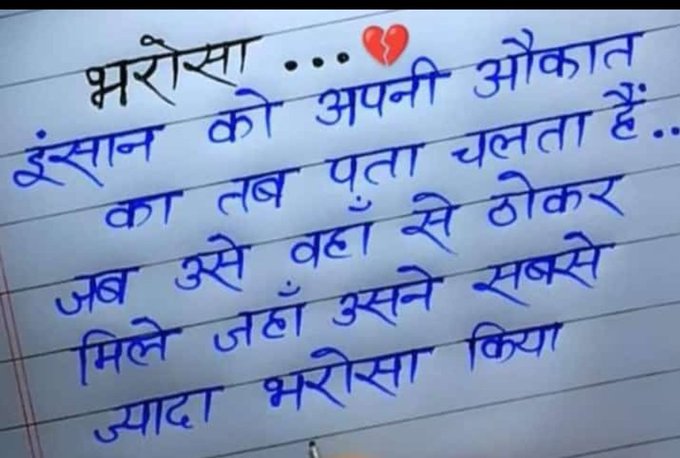 भरोसा ...💔
इंसान को अपनी औकात
का तब पता चलता हैं..
जब उसे वहाँ से ठोकर
मिले जहाँ उसने सबसे
ज्यादा भरोसा किया